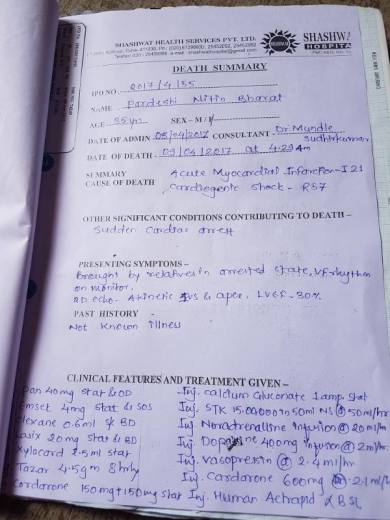 SHASHWAT HEALTH SERVICES PVT. LTD.
SHASHWAT
SHASHWA
HOSPITA
DEATH SUMMARY
IPD NO. 2017/4/35
NAME Pardeshi Nitin Bharat
AGE 35yrs SEX – M/F
DATE OF ADMIN 08/04/2017 CONSULTANT Dr. Mundle
Sudhirkumar
DATE OF DEATH 09/04/2017 at 4:29Am
SUMMARY Acute Myocardial Infarction - I 21
CAUSE OF DEATH Cardiogenic shock - R57
OTHER SIGNIFICANT CONDITIONS CONTRIBUTING TO DEATH –
Sudden cardiac arrest
PRESENTING SYMPTOMS –
Brought by relatives in arrested state, VF rhythm
on monitor.
2D echo - Akinetic IVS & apex, LVEF - 30%
PAST HISTORY –
Not Known illness
CLINICAL FEATURES AND TREATMENT GIVEN –
Pan 40mg Stat & OD Inj. Calcium Gluconate 1amp. Stat
Emset 4mg Stat & SOS Inj. STK 15,00,000 in 50ml NS @ 50ml/hr
Clexane 0.6ml S/C BD Inj. Noradrenaline infusion @ 20ml/h
Lasix 20mg Stat & BD Inj. Dopamine 400mg infusion @ 2ml/hr
Xylocard 2.5ml stat Inj. Vasopressin @ 2.4ml/hr
Tazar 4.5gm 8hrly Inj. Cardarone 600mg @ 2.1ml/h
Cordarone 150mg + 150mg stat Inj. Human Actrapid